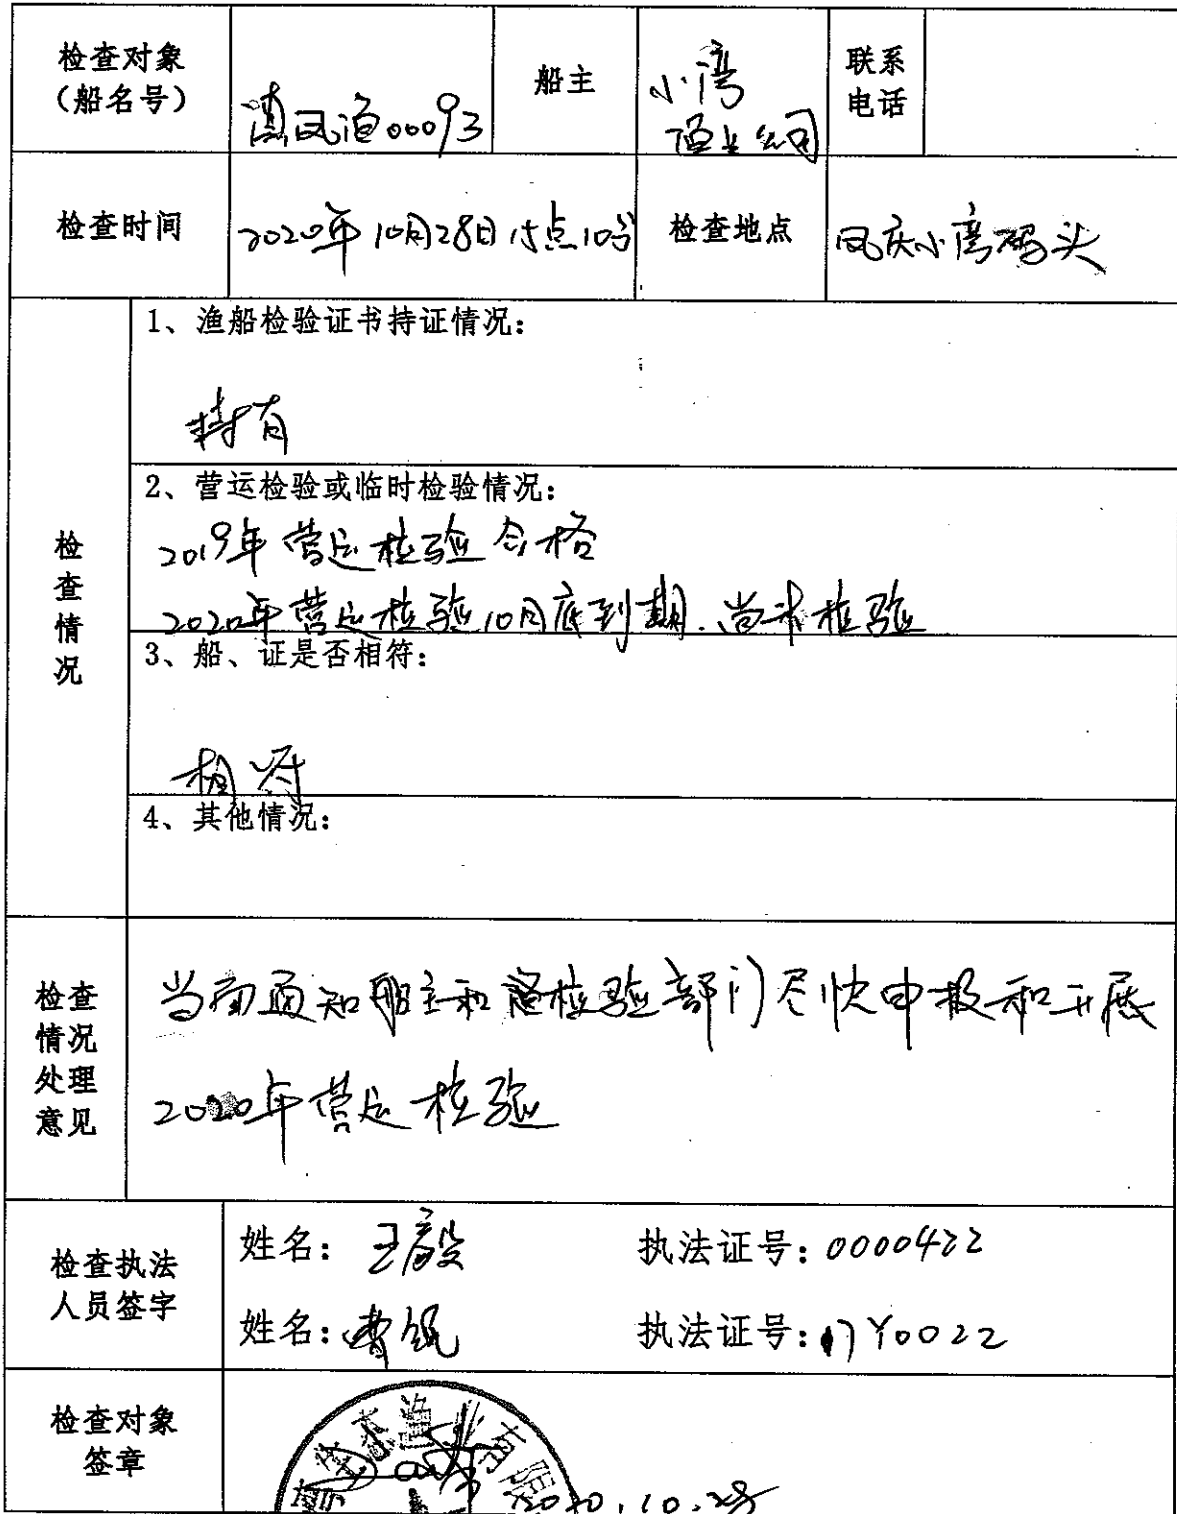 检查对象
（船名号）
滇凤渔00093
船主
小湾
渔业公司
联系
电话
检查时间
2020年10月28日15点10分
检查地点
凤庆小湾码头
检查情况
1、渔船检验证书持证情况：
持有
2、营运检验或临时检验情况：
2019年营运检验合格
2020年营运检验10月底到期.尚未检验
3、船、证是否相符：
相符
4、其他情况：
检查
情况
处理
意见
当面通知船主和 检验部门尽快申报和开展
2020年营运检验
检查执法
人员签字
姓名：王毅
执法证号：0000422
姓名：曹
执法证号：17Y0022
检查对象
签章
渔业有限
2020.10.28